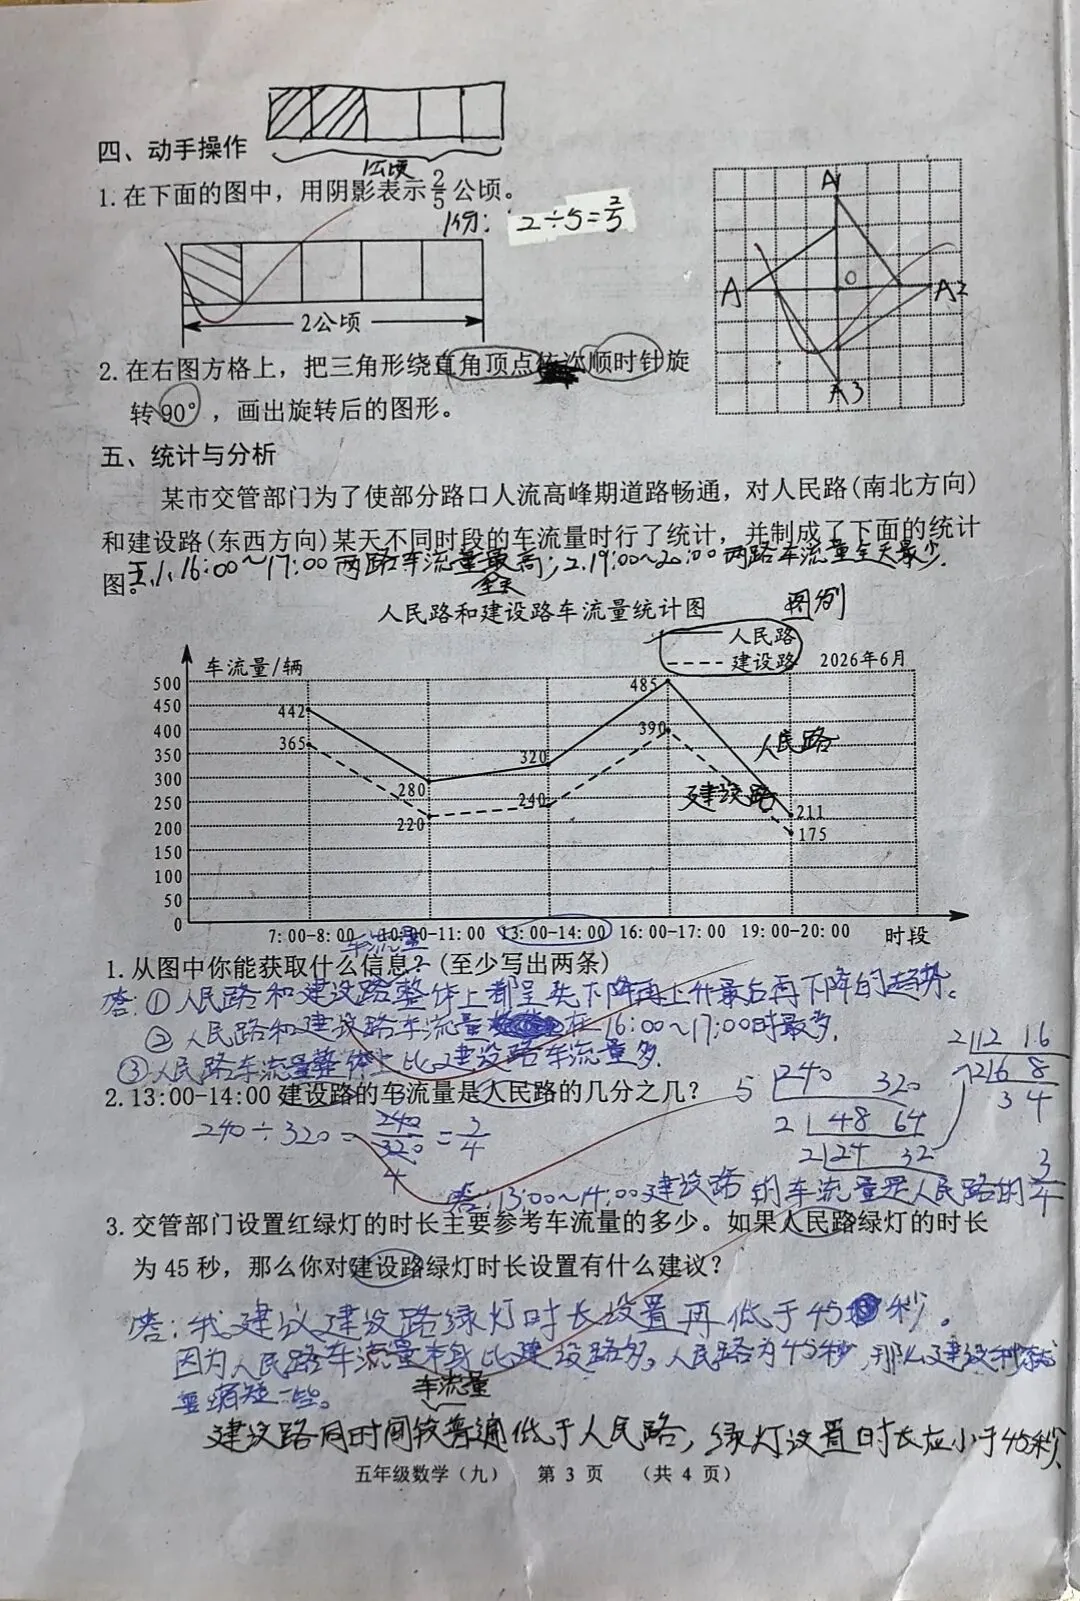 四、动手操作
1公顷
1.在下面的图中，用阴影表示2/5公顷。
1份： 2÷5=2/5
2公顷
A1
A
O
A2
A3
2.在右图方格上，把三角形绕直角顶点依次顺时针旋
转90°，画出旋转后的图形。
五、统计与分析
某市交管部门为了使部分路口人流高峰期道路畅通，对人民路(南北方向)
和建设路(东西方向)某天不同时段的车流量时行了统计，并制成了下面的统计
图。
五.1、16:00~17:00两路车流量最高；2.19:00~20:00两路车流量全天最少.
全天
人民路和建设路车流量统计图
图例
人民路
建设路
2026年6月
车流量/辆
500
450
400
350
300
250
200
150
100
50
0
442
365
280
220
320
240
485
390
211
175
人民路
建设路
7:00-8:00 10:00-11:00 13:00-14:00 16:00-17:00 19:00-20:00 时段
车流量
1.从图中你能获取什么信息？(至少写出两条)
答：①人民路和建设路整体上都呈先下降再上升最后再下降的趋势。
②人民路和建设路车流量在16:00~17:00时最多.
③人民路车流量整体上比建设路车流量多.
2.13:00-14:00建设路的车流量是人民路的几分之几？
240÷320=240/320=3/4
3
4
5 240 320
2 48 64
2 24 32
2 12 16
2 6 8
3 4
答：13:00~14:00建设路的车流量是人民路的3/4
3.交管部门设置红绿灯的时长主要参考车流量的多少。如果人民路绿灯的时长
为45秒，那么你对建设路绿灯时长设置有什么建议？
答：我建议建设路绿灯时长设置再低于45秒。
因为人民路车流量本身比建设路多。人民路为45秒，那么建设
要缩短一些。
车流量
建设路同时间较普遍低于人民路，绿灯设置时长应小于45秒.
五年级数学（九） 第 3 页 （共 4 页）